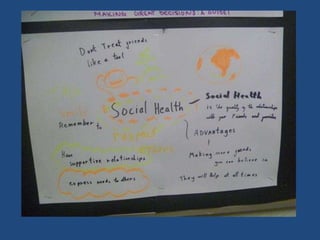 MAKING GREAT DECISIONS: A GUIDE!
Dont Treat friends
like a tool
Social Health
Social Health
is the quality of the relationships
with your friends and
smile
Remember to
respect
others
Advantages
Have
supportive relationships
Making more friends
you can believe in
express needs to others
They will help at all times